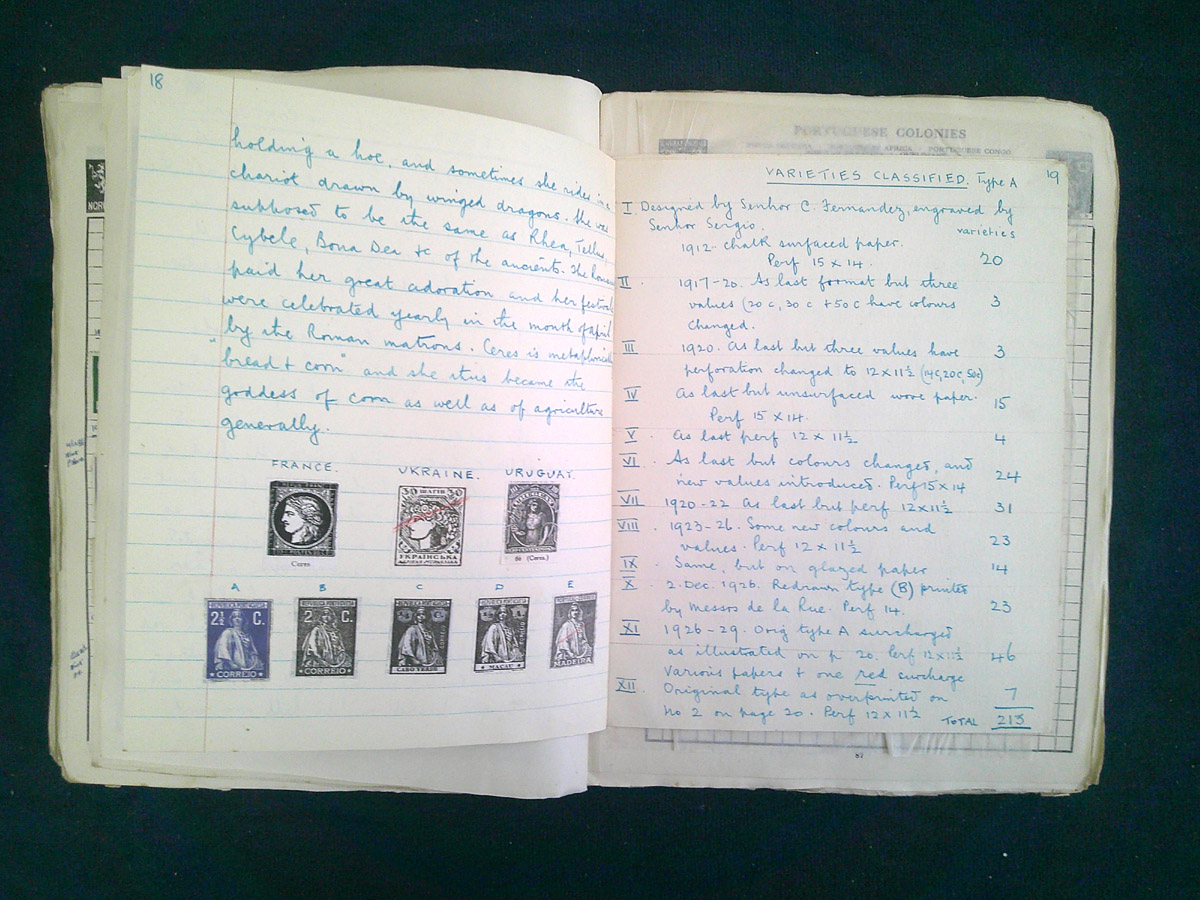 18
holding a hoe, and sometimes she rides in a
chariot drawn by winged dragons. She was
supposed to be the same as Rhea, Tellus,
Cybele, Bona Dea &c of the ancients. The Romans
paid her great adoration and her festivals
were celebrated yearly in the month of april
by the Roman matrons. Ceres is metaphorically
"bread + corn" and she thus became the
goddess of corn as well as of agriculture
generally.
FRANCE. UKRAINE. URUGUAY.
30 30
УКРАЇНСЬКА
Ceres
6c (Ceres.)
A B C D E
2½ C. 2 C.
CORREIO CORREIO CABO VERDE MACAU MADEIRA
NOR
PORTUGUESE COLONIES
PORTUGUESE CONGO
19
VARIETIES CLASSIFIED. Type A
I. Designed by Senhor C. Fernandez, engraved by
Senhor Sergio. varieties
1912- chalk surfaced paper.
Perf 15 x 14. 20
II 1917-20. As last format but three
values (20 c, 30 c + 50 c have colours 3
changed.
III 1920. As last but three values have 3
perforation changed to 12 x 11½ (14c, 20c, 50c)
IV As last but unsurfaced wove paper. 15
Perf 15 x 14.
V. As last perf 12 x 11½ 4
VI. As last but colours changed, and
new values introduced. Perf 15 x 14 24
VII 1920-22 As last but perf 12x11½ 31
VIII. 1923-26. Some new colours and
values. Perf 12 x 11½ 23
IX Same, but on glazed paper 14
X. 2. Dec. 1926. Redrawn type (B) printed
by Messrs de la Rue. Perf 14. 23
XI 1926-29. Orig type A surcharged
as illustrated on p 20. Perf 12x11½ 46
Various papers + one red surcharge
XII. Original type as overprinted on 7
No 2 on page 20. Perf 12 x 11½ TOTAL 213